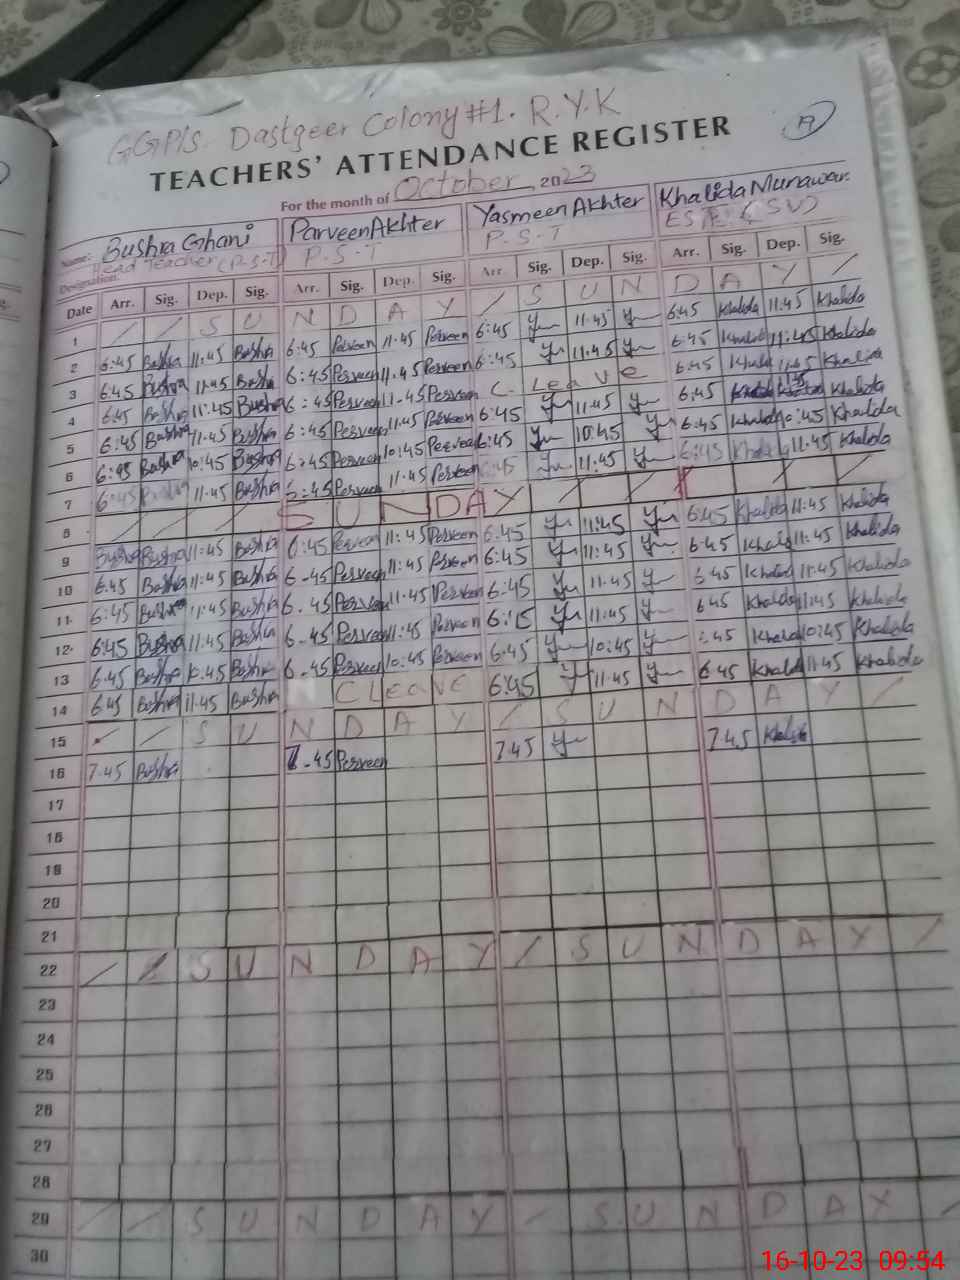 GGP/S. Dastgeer Colony #1. R.Y.K
19
TEACHERS' ATTENDANCE REGISTER
For the month of October 2023
Name: Bushra Ghani Parveen Akhter Yasmeen Akhter Khalida Munawar.
Designation: Head Teacher (P.S.T) P.S.T P.S.T
Date Arr. Sig. Dep. Sig. Arr. Sig. Dep. Sig. Arr. Sig. Dep. Sig. Arr. Sig. Dep. Sig.
1 / / S U N D A Y / S U N D A Y /
2 6:45 Bushra 11:45 Bushra 6:45 Perveen 11.45 Perveen 6:45 11:45 6:45 Khalida 11:45 Khalida
3 6:45 Bushra 11:45 Bushra 6:45 Perveen 11.45 Perveen 6:45 11:45 6:45 Khalida 11:45 Khalida
4 6:45 Bushra 11:45 Bushra 6:45 Perveen 11-45 Perveen C. Leave 6:45 Khalida 11:45 Khalida
5 6:45 Bushra 11.45 Bushra 6:45 Perveen 11:45 Perveen 6:45 11:45 6:45 Khalida
6 6:45 Bushra 10:45 Bushra 6:45 Perveen 10:45 Perveen 6:45 10:45 6:45 Khalida 10:45 Khalida
7 6:45 Bushra 11.45 Bushra 6:45 Perveen 11.45 Perveen 6:45 11:45 6:45 Khalida 11:45 Khalida
8 / / / / S U N D A Y / / / / / /
9 Bushra Bushra 11:45 Bushra 6:45 Perveen 11:45 Perveen 6:45 11:45 6:45 Khalida 11:45 Khalida
10 6.45 Bushra 11:45 Bushra 6-45 Perveen 11:45 Perveen 6:45 11:45 6:45 Khalida 11:45 Khalida
11 6:45 Bushra 11:45 Bushra 6.45 Perveen 11.45 Perveen 6:45 11:45 6:45 Khalida 11:45 Khalida
12 6:45 Bushra 11:45 Bushra 6-45 Perveen 11:45 Perveen 6:15 11:45 6:45 Khalida 11:45 Khalida
13 6:45 Bushra 10:45 Bushra 6-45 Perveen 10:45 Perveen 6:45 10:45 :45 Khalida 10:45 Khalida
14 6:45 Bushra 11.45 Bushra C LEAVE 6:45 11.45 6:45 Khalida 11:45 Khalida
15 / / S U N D A Y / S U N D A Y /
16 7.45 Bushra 7-45 Perveen 7:45 7:45 Khalida
17
18
19
20
21
22 / / S U N D A Y / S U N D A Y /
23
24
25
26
27
28
29 / / S U N D A Y / S U N D A Y /
30
16-10-23 09:54